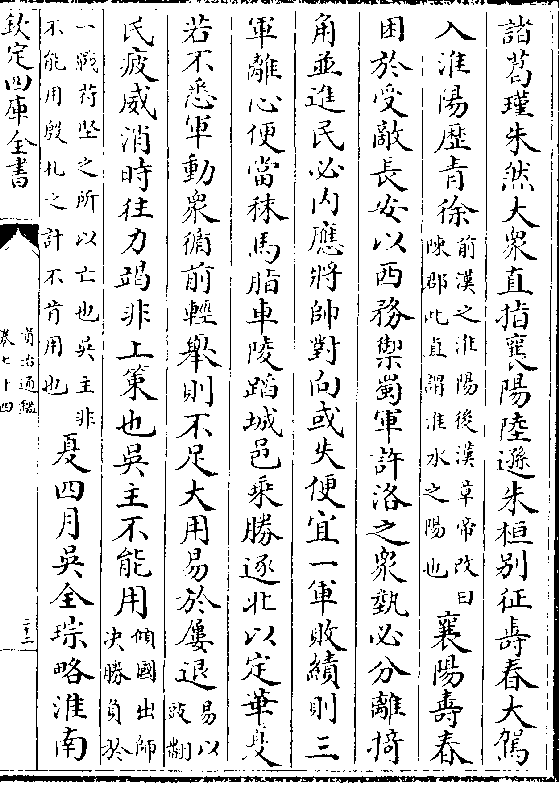 諸葛瑾朱然大衆直指襄陽陸遜朱桓别征壽春大駕
入淮陽歷青徐前漢之淮陽後漢章帝改曰
陳郡此直謂淮水之陽也襄陽壽春
困於受敵長安以西務禦蜀軍許洛之衆埶必分離掎
角並進民必内應將帥對向或失便宜一軍敗績則三
軍離心便當秣馬脂車陵蹈城邑乘勝逐北以定華夏
若不悉軍動衆循前輕舉則不足大用易於屢退易以
豉翻
民疲威消時往力竭非上策也吳主不能用傾國出師
决勝負於
一戰苻堅之所以亡也吳主非
不能用殷札之計不肯用也夏四月吳全琮略淮南
欽定四庫全書
資治通鑑
卷七十四
二十二